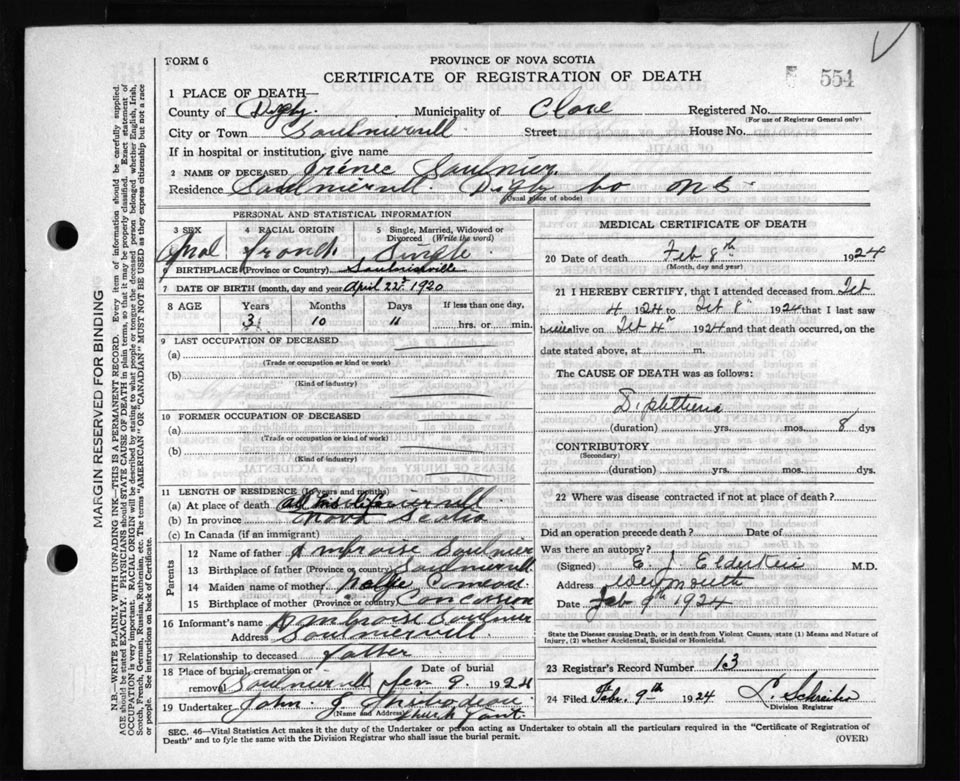 FORM 6
PROVINCE OF NOVA SCOTIA
CERTIFICATE OF REGISTRATION OF DEATH
554
1 PLACE OF DEATH—
County of Digby. Municipality of Clare Registered No.
(For use of Registrar General only)
City or Town Saulnierville Street House No.
If in hospital or institution, give name
2 NAME OF DECEASED Irénée Saulnier.
Residence Saulniervill. Digby Co N S
(Usual place of abode)
PERSONAL AND STATISTICAL INFORMATION
3 SEX 4 RACIAL ORIGIN 5 Single, Married, Widowed or
Divorced (Write the word)
Mal French Single
6 BIRTHPLACE (Province or Country) Saulnierville
7 DATE OF BIRTH (month, day and year) April 22 1920
8 AGE Years Months Days If less than one day,
3 10 11 hrs. or min.
9 LAST OCCUPATION OF DECEASED
(a)
(Trade or occupation or kind or work)
(b)
(Kind of industry)
10 FORMER OCCUPATION OF DECEASED
(a)
(Trade or occupation or kind or work)
(b)
(Kind of industry)
11 LENGTH OF RESIDENCE (In years and months)
(a) At place of death
(b) In province Nova Scotia
(c) In Canada (if an immigrant)
Parents
12 Name of father Ambroise Saulnier
13 Birthplace of father (Province or country) Saulniervill
14 Maiden name of mother Comeau
15 Birthplace of mother (Province or country) Concession
16 Informant's name Ambroise Saulnier
Address Saulniervill.
17 Relationship to deceased father
18 Place of burial, cremation or Date of burial
removal Saulniervill 9 1924
19 Undertaker John J Thibodeau
(Name and Address) Church Point.
MEDICAL CERTIFICATE OF DEATH
20 Date of death Feb 8th 1924
(Month, day and year)
21 I HEREBY CERTIFY, that I attended deceased from Feb
4 1924 to Feb 8th 1924 that I last saw
him alive on Feb 4th 1924 and that death occurred, on
date stated above, at m.
The CAUSE OF DEATH was as follows:
Diphtheria
(duration) yrs. mos. 8 dys
CONTRIBUTORY
(Secondary)
(duration) yrs. mos. dys.
22 Where was disease contracted if not at place of death?
Did an operation precede death? Date of
Was there an autopsy?
(Signed) E. J. Elderkin M.D.
Address Weymouth
Date Feb 9th 1924
State the Disease causing Death, or in death from Violent Causes, state (1) Means and Nature of
Injury, (2) whether Accidental, Suicidal or Homicidal.
23 Registrar's Record Number 13
24 Filed Feb. 9th 1924
Division Registrar
SEC. 46—Vital Statistics Act makes it the duty of the Undertaker or person acting as Undertaker to obtain all the particulars required in the "Certificate of Registration of
Death" and to fyle the same with the Division Registrar who shall issue the burial permit. (OVER)
MARGIN RESERVED FOR BINDING
N.B.—WRITE PLAINLY WITH UNFADING INK—THIS IS A PERMANENT RECORD. Every item of information should be carefully supplied.
AGE should be stated EXACTLY. PHYSICIANS should STATE CAUSE OF DEATH in plain terms, so that it may be properly classified. Exact statement of
OCCUPATION is very important. RACIAL ORIGIN will be described by stating to what people or tongue the deceased person belonged whether English, Irish,
Scotch, French, German, Russian, Ruthenian, etc. The terms "AMERICAN" OR "CANADIAN" MUST NOT BE USED as they express citizenship but not a race
or people. See instructions on back of Certificate.